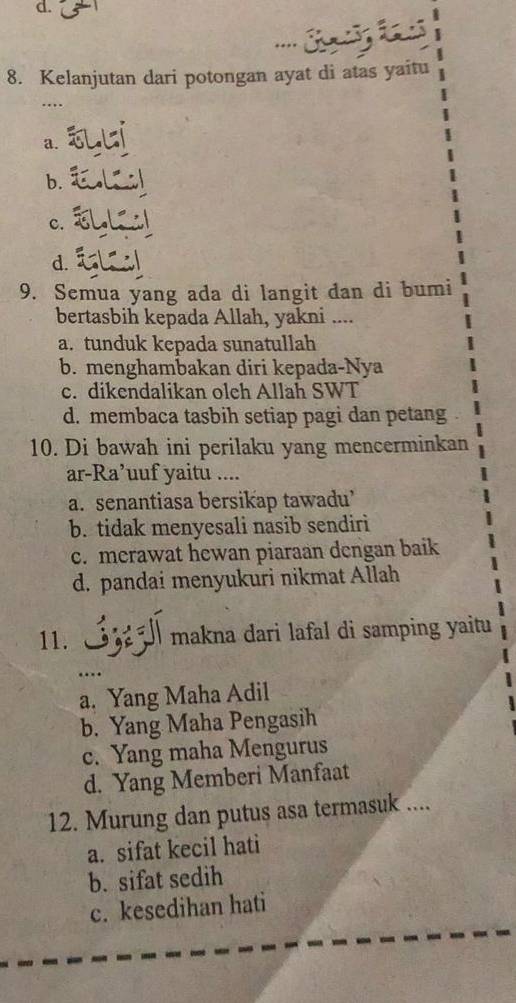 d. اَلْحَيُّ
تِسْعَةً وَتِسْعِيْنَ ....
8. Kelanjutan dari potongan ayat di atas yaitu
....
a.
b.
c.
d.
9. Semua yang ada di langit dan di bumi
bertasbih kepada Allah, yakni ....
a. tunduk kepada sunatullah
b. menghambakan diri kepada-Nya
c. dikendalikan oleh Allah SWT
d. membaca tasbih setiap pagi dan petang
10. Di bawah ini perilaku yang mencerminkan
ar-Ra'uuf yaitu ....
a. senantiasa bersikap tawadu'
b. tidak menyesali nasib sendiri
c. merawat hewan piaraan dengan baik
d. pandai menyukuri nikmat Allah
11. اَلرَّءُوْفُ makna dari lafal di samping yaitu
....
a. Yang Maha Adil
b. Yang Maha Pengasih
c. Yang maha Mengurus
d. Yang Memberi Manfaat
12. Murung dan putus asa termasuk ....
a. sifat kecil hati
b. sifat sedih
c. kesedihan hati